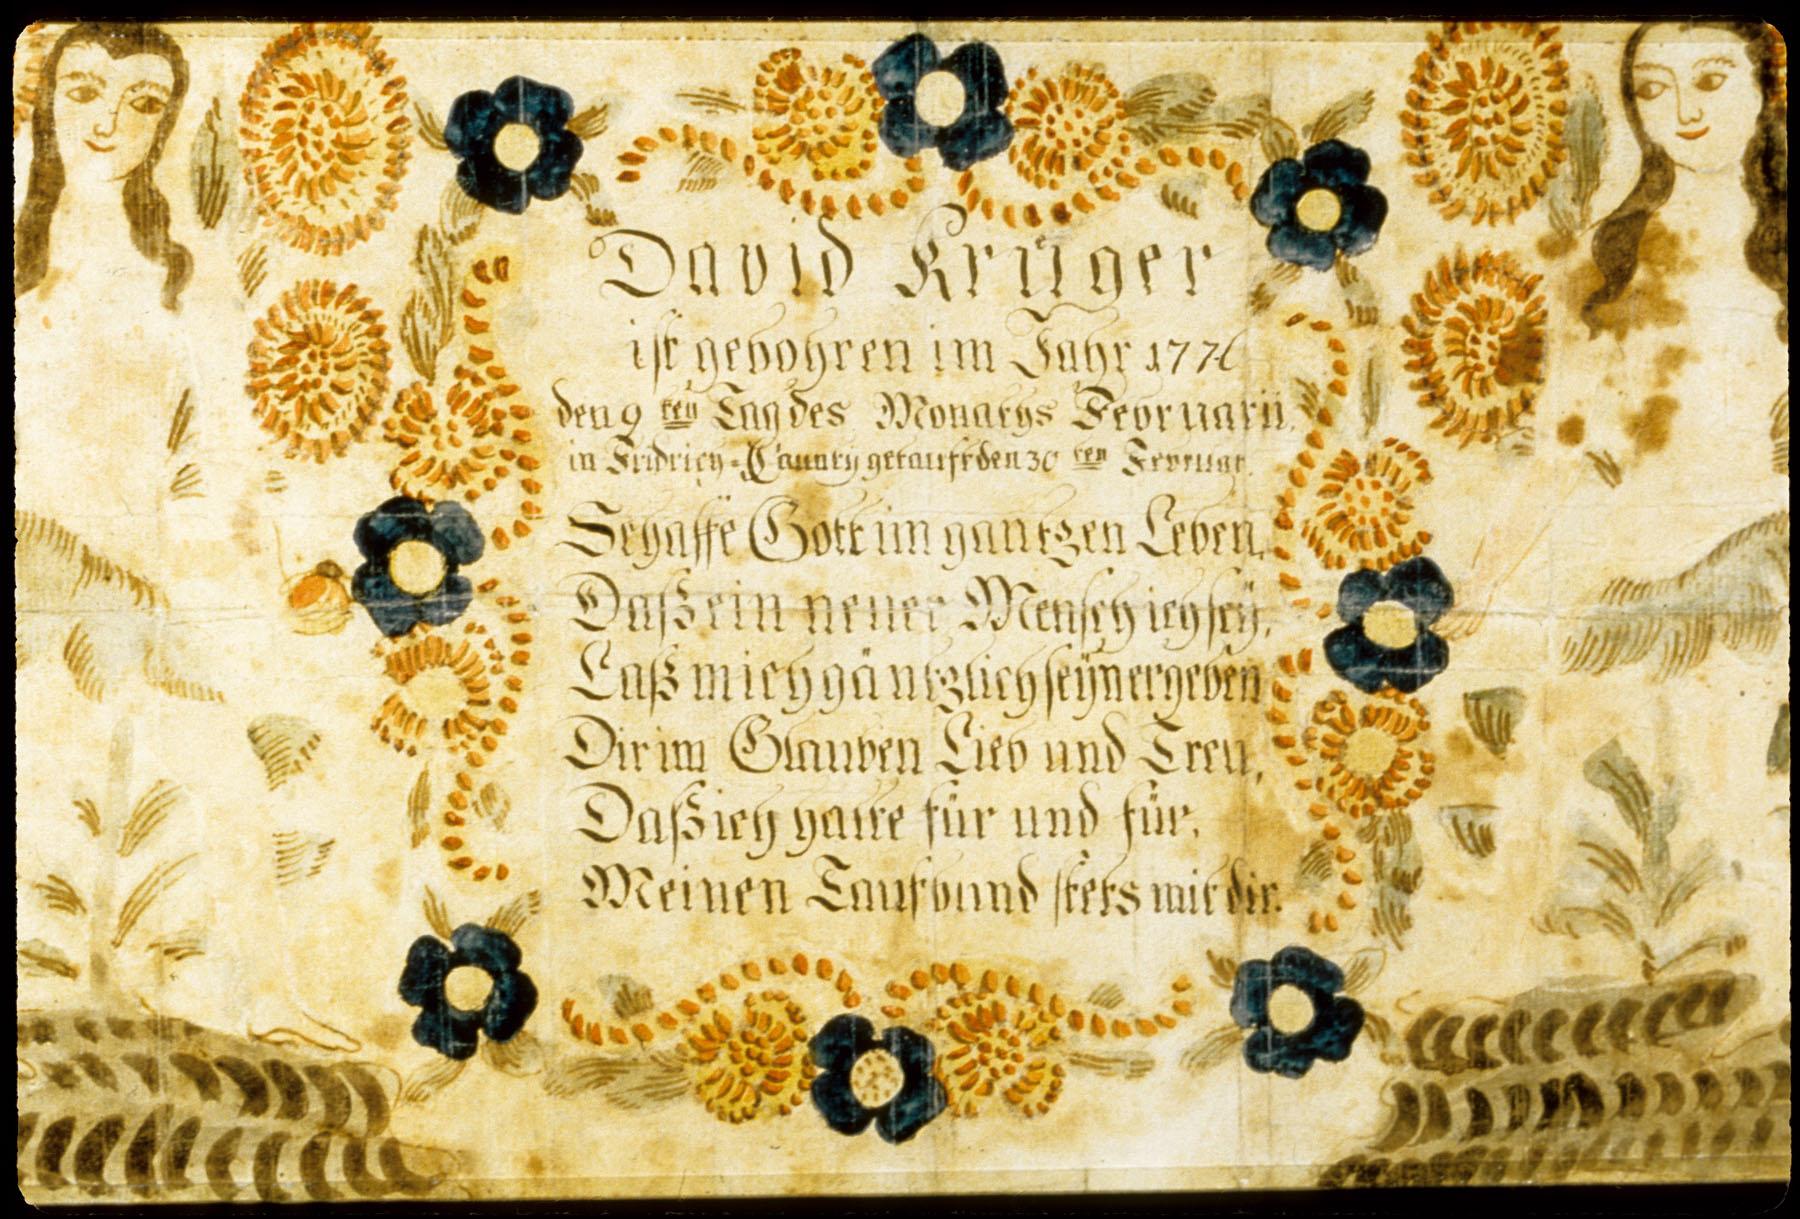 David Krüger
ist gebohren im Jahr 1776
den 9 ten Tag des Monaths Februarii,
in Fridrich=Caunty getauft den 30 ten Februar.
Schaffe Gott im gantzen Leben,
Daß ein neuer Mensch ich seÿ,
Laß mich gäntzlich seÿn ergeben
Dir im Glauben Lieb und Treu,
Daß ich halte für und für,
Meinen Taufbund stets mit dir.